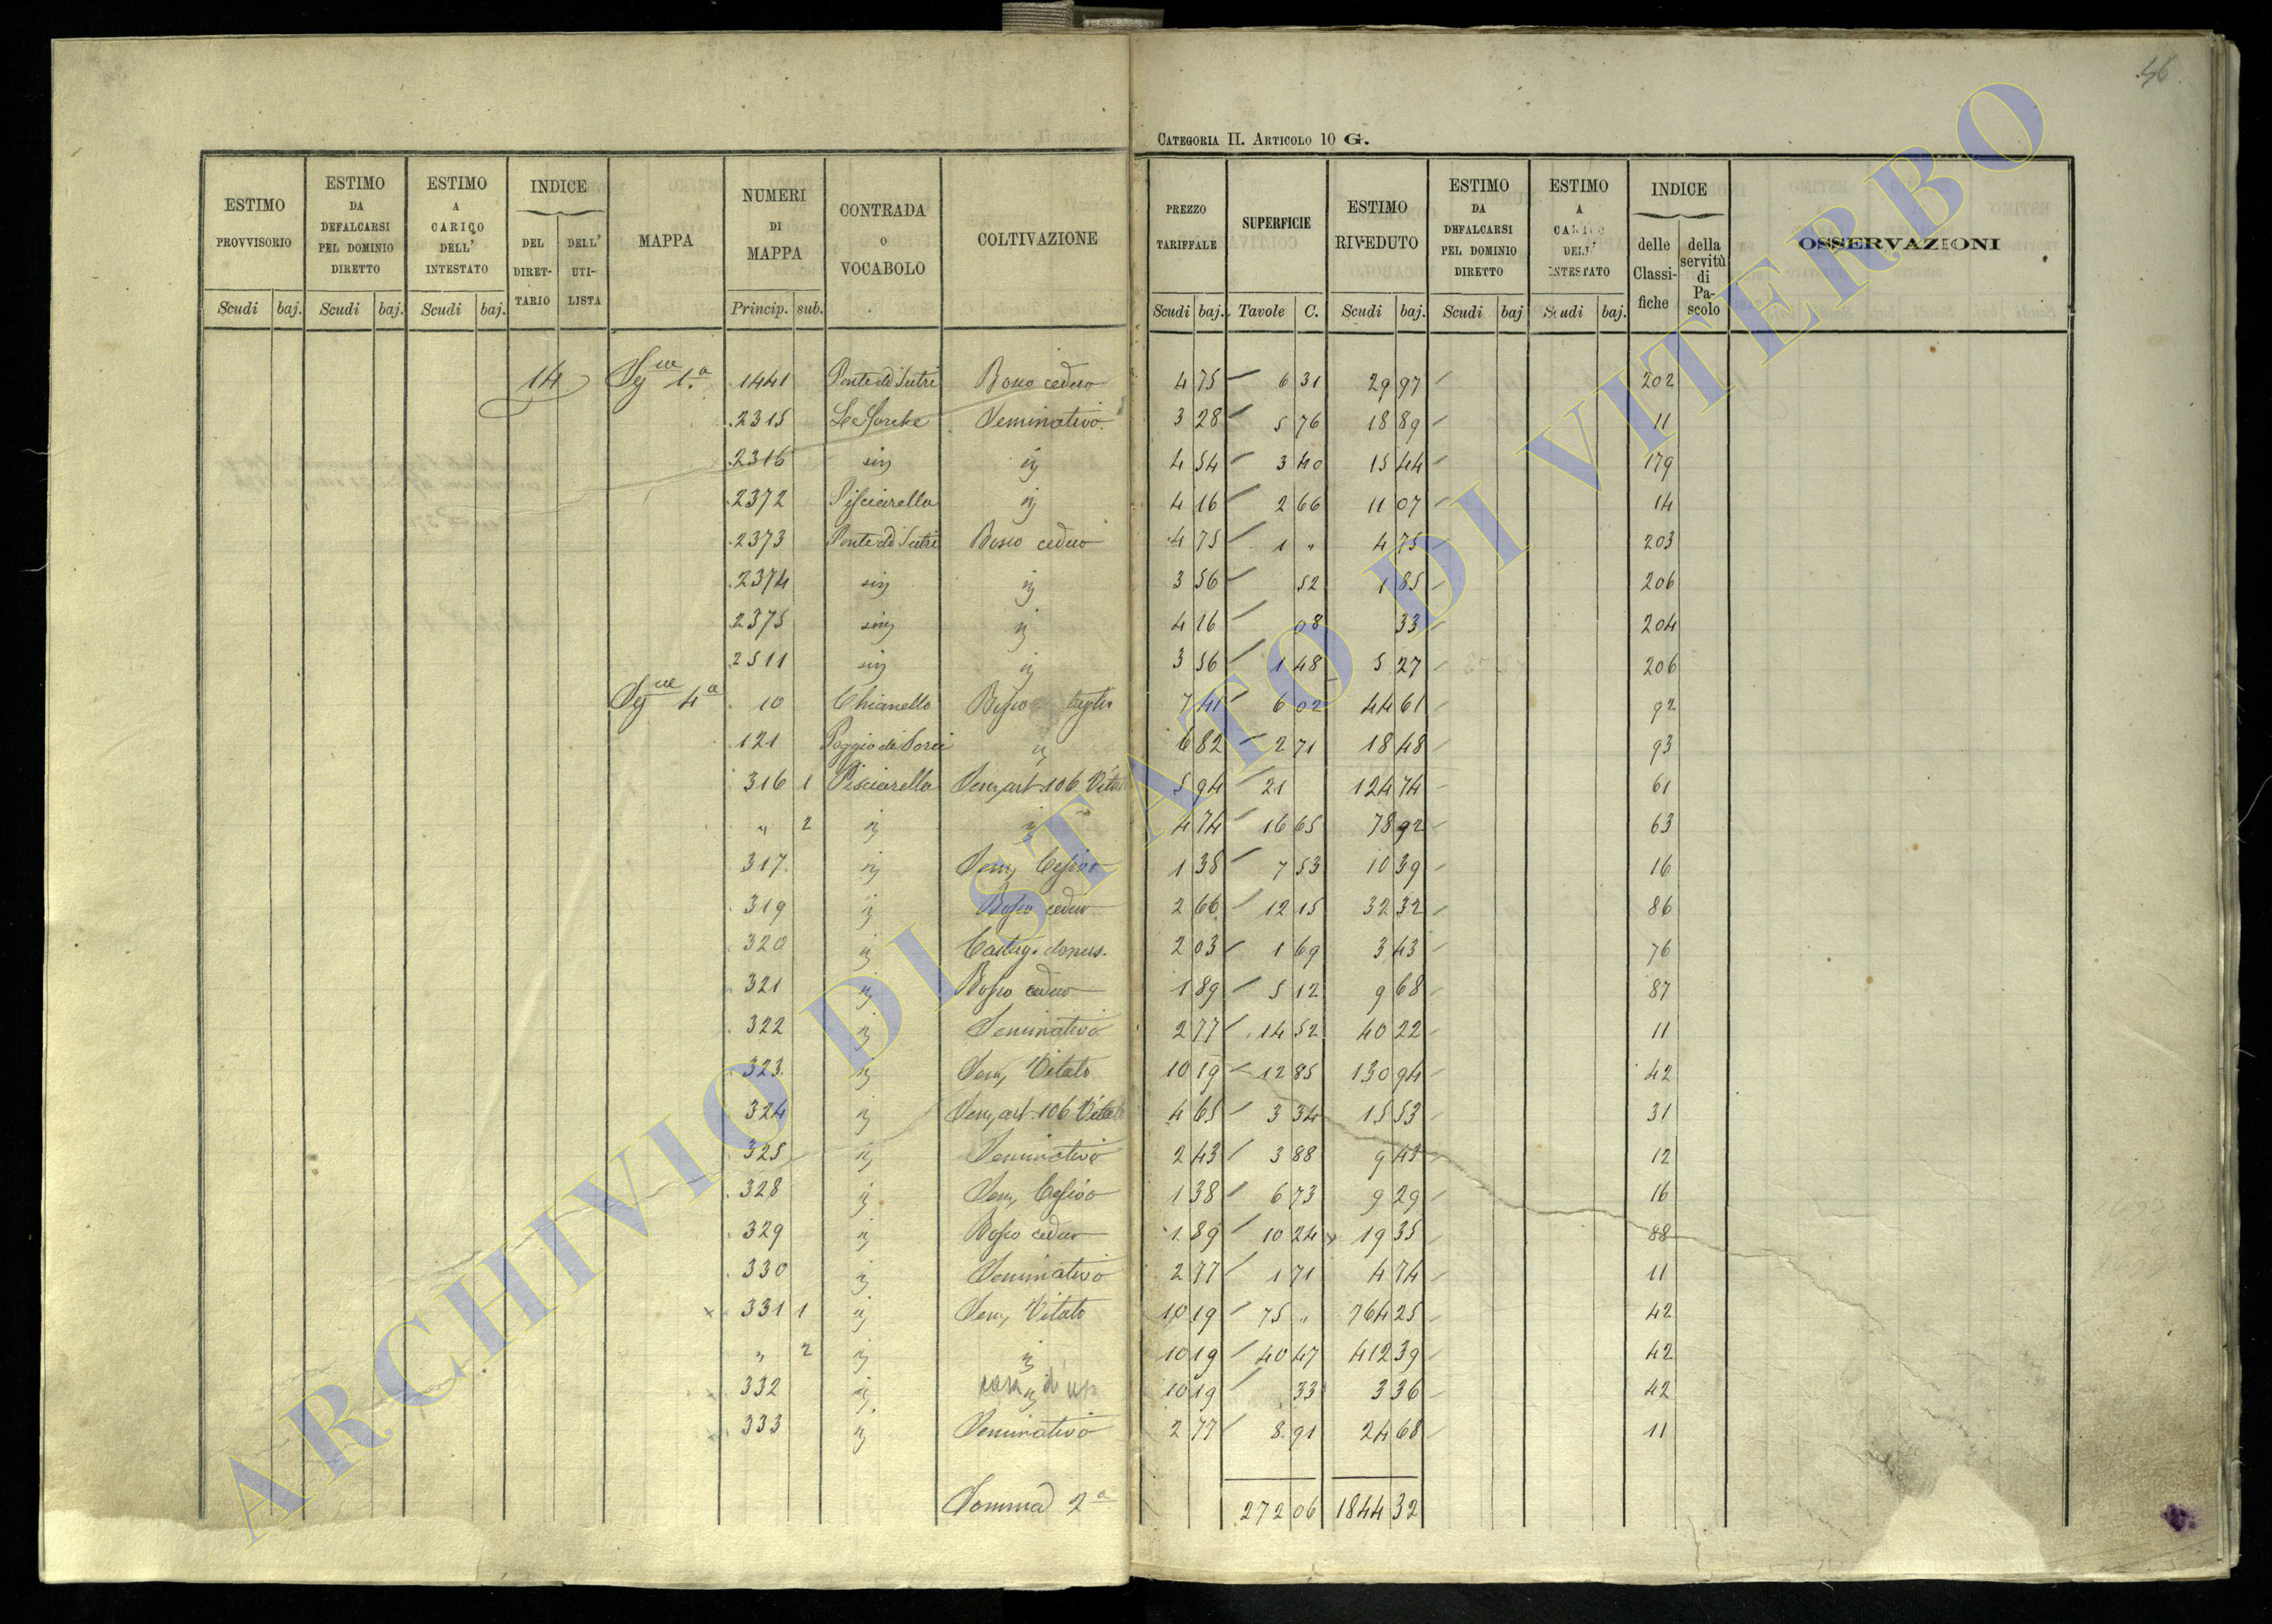 46
CATEGORIA II. ARTICOLO 10 G.
ESTIMO PROVVISORIO Scudi baj. | ESTIMO DA DEFALCARSI PEL DOMINIO DIRETTO Scudi baj. | ESTIMO A CARICO DELL' INTESTATO Scudi baj. | INDICE DEL DIRETTARIO DELL' UTILISTA | MAPPA | NUMERI DI MAPPA Princip. sub. | CONTRADA O VOCABOLO | COLTIVAZIONE | PREZZO TARIFFALE Scudi baj. | SUPERFICIE Tavole C. | ESTIMO RIVEDUTO Scudi baj. | ESTIMO DA DEFALCARSI PEL DOMINIO DIRETTO Scudi baj | ESTIMO A CARICO DELL' INTESTATO Scudi baj. | INDICE delle Classifiche della servitù di Pascolo | OSSERVAZIONI
14 Sez.ne 1.a 1441 Ponte di Sutri Bosco ceduo 4 75 6 31 29 97 202
2315 Le Forche Seminativo 3 28 5 76 18 89 11
2316 sin ij 4 54 3 40 15 44 179
2372 Pisciarella ij 4 16 2 66 11 07 14
2373 Ponte di Sutri Bosco ceduo 4 75 1 " 4 75 203
2374 sin ij 3 56 52 1 85 206
2375 sin ij 4 16 08 33 204
2511 sin ij 3 56 1 48 5 27 206
4a 10 Chianello Bosco 7 41 6 02 44 61 92
121 Poggio di Sorci ij 6 82 2 71 18 48 93
316 1 Pisciarella Sem, art. 106 Vitato 5 94 21 124 74 61
" 2 ij ij 4 74 16 65 78 92 63
317 ij Sem, Cesivo 1 38 7 53 10 39 16
319 ij Bosco ceduo 2 66 12 15 32 32 86
320 ij Castag. domes. 2 03 1 69 3 43 76
321 ij Bosco ceduo 1 89 5 12 9 68 87
322 ij Seminativo 2 77 14 52 40 22 11
323 ij Sem, Vitato 10 19 12 85 130 94 42
324 ij Sem, art. 106 Vitato 4 65 3 34 15 53 31
325 ij Seminativo 2 43 3 88 9 43 12
328 ij Sem, Cesivo 1 38 6 73 9 29 16
329 ij Bosco ceduo 1 89 10 24 19 35 88
330 ij Seminativo 2 77 1 71 4 74 11
331 1 ij Sem, Vitato 10 19 75 " 764 25 42
" 2 ij ij 10 19 40 47 412 39 42
332 ij ij 10 19 33 3 36 42
333 ij Seminativo 2 77 8 91 24 68 11
Somma 2a 272 06 1844 32
ARCHIVIO DI STATO DI VITERBO